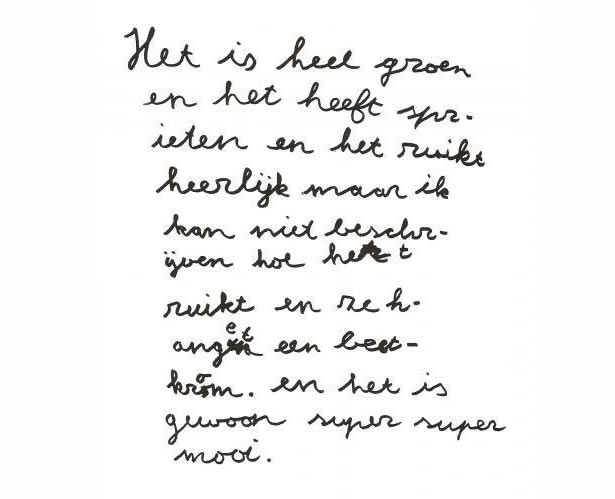 Het is heel groen
en het heeft spr-
ieten en het ruikt
heerlijk maar ik
kan niet beschr-
ijven hoe het
ruikt en ze h-
angen een beet-
krom. en het is
gewoon super super
mooi.